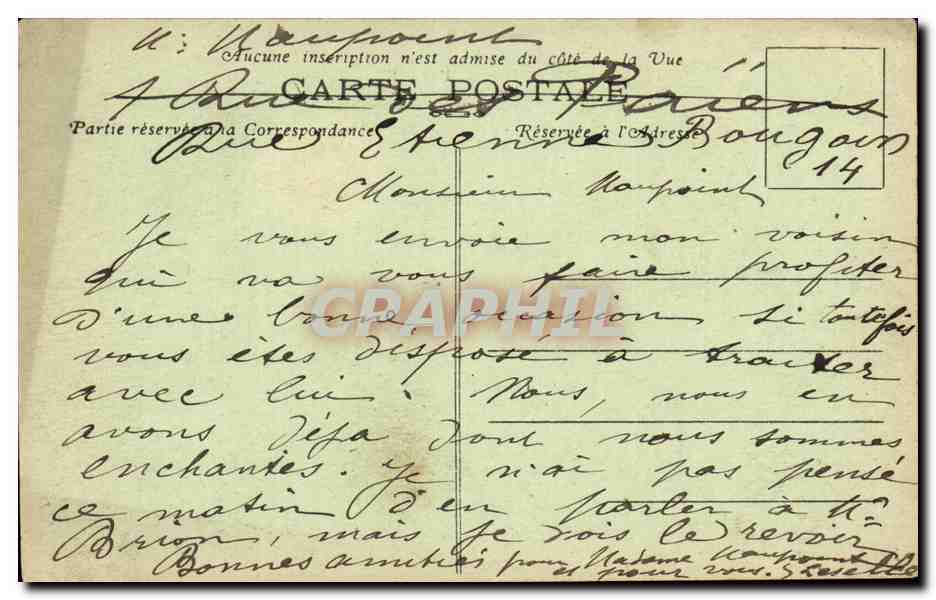 M: Maupoint
Aucune inscription n'est admise du côté de la Vue
CARTE POSTALE
Rue des
Partie réservée à la Correspondance
Réservée à l'Adresse
Rue Etienne Bougoin
14
Monsieur Maupoint
Je vous envoie mon voisin
qui va vous faire profiter
d'une bonne occasion si toutefois
vous êtes disposé à traiter
avec lui. Nous, nous en
avons déja dont nous sommes
enchantés. Je n'ai pas pensé
ce matin d'en parler à Mr
Brion, mais je vois le revoir
Bonnes amitiés pour Madame Maupoint
et pour vous.
CPAPHIL